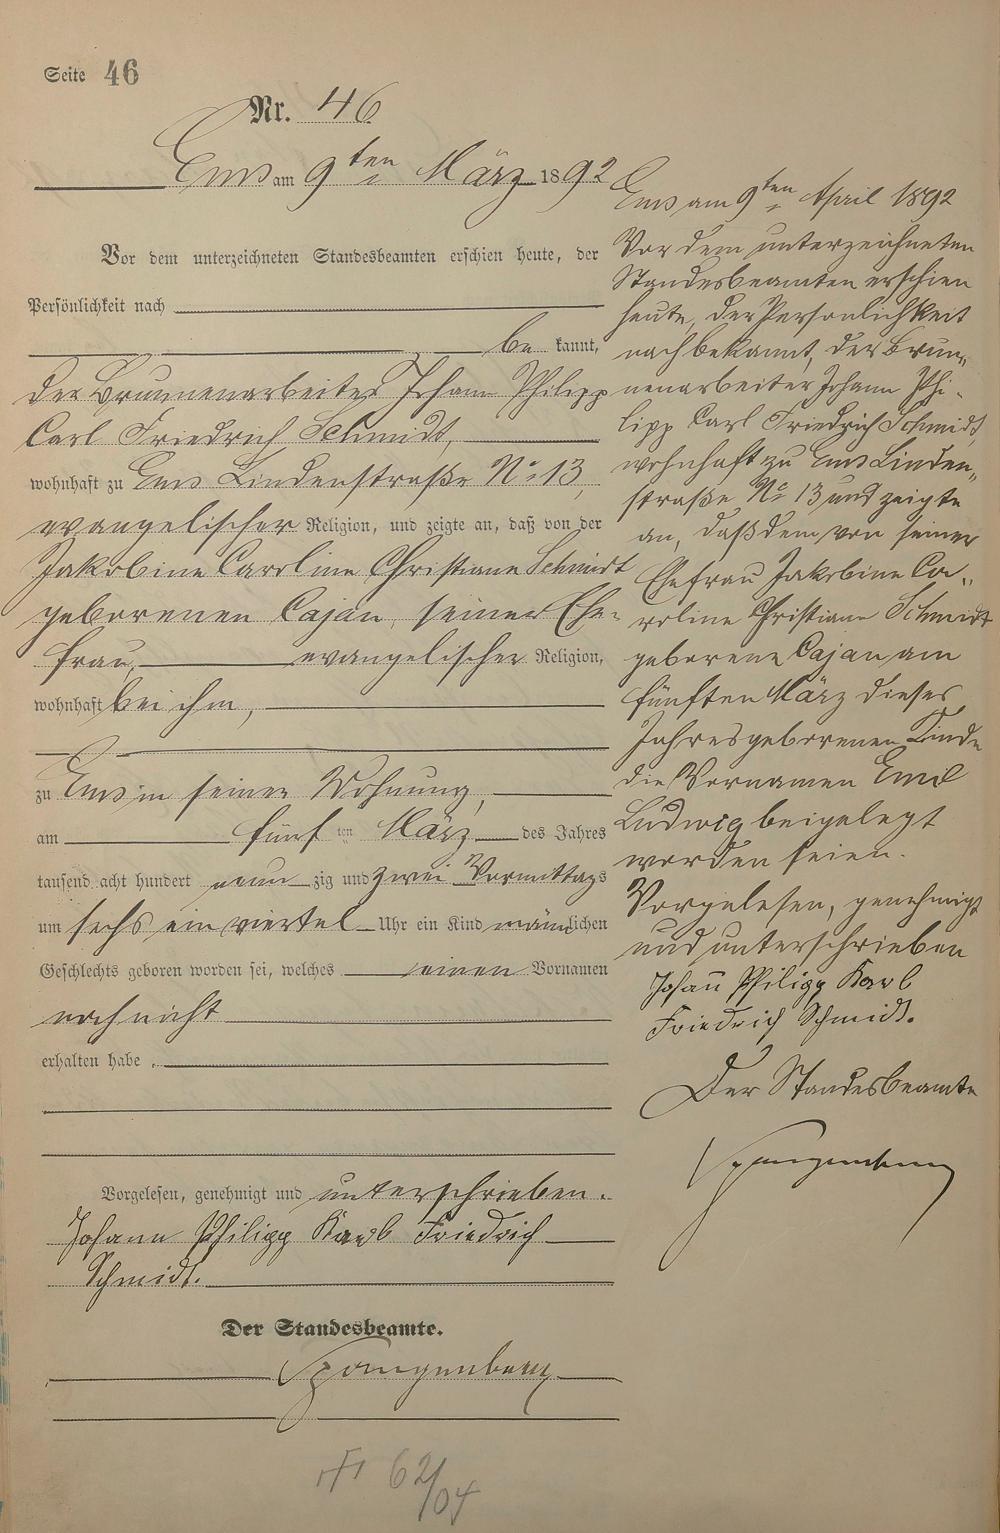 Seite 46
Nr. 46
Ems am 9ten März 1892
Vor dem unterzeichneten Standesbeamten erschien heute, der
Persönlichkeit nach
be kannt,
der Brunnenarbeiter Johann Philipp
Carl Friedrich Schmidt,
wohnhaft zu Ems Lindenstraße No 13,
evangelischer Religion, und zeigte an, daß von der
Jakobine Caroline Christiane Schmidt
geborenen Cajan, seiner Ehe-
frau, evangelischer Religion,
wohnhaft bei ihm,
zu Ems in seiner Wohnung,
am fünf ten März des Jahres
tausend acht hundert neun zig und zwei Vormittags
um sechs ein viertel Uhr ein Kind männlichen
Geschlechts geboren worden sei, welches einen Vornamen
noch nicht
erhalten habe.
Vorgelesen, genehmigt und unterschrieben.
Johann Philipp Karl Friedrich
Schmidt.
Der Standesbeamte.
Spangenberg
62/04
Ems am 9ten April 1892
Vor dem unterzeichneten
Standesbeamten erschien
heute, der Persönlichkeit
nach bekannt, der Brun-
nenarbeiter Johann Phi-
lipp Carl Friedrich Schmidt,
wohnhaft zu Ems Linden-
straße No 13 und zeigte
an, daß dem von seiner
Ehefrau Jakobine Ca-
roline Christiane Schmidt
geborene Cajan am
fünften März dieses
Jahres geborenen Kinde
die Vornamen Emil
Ludwig beigelegt
worden seien.
Vorgelesen, genehmigt
und unterschrieben
Johann Philipp Karl
Friedrich Schmidt.
Der Standesbeamte
Spangenberg